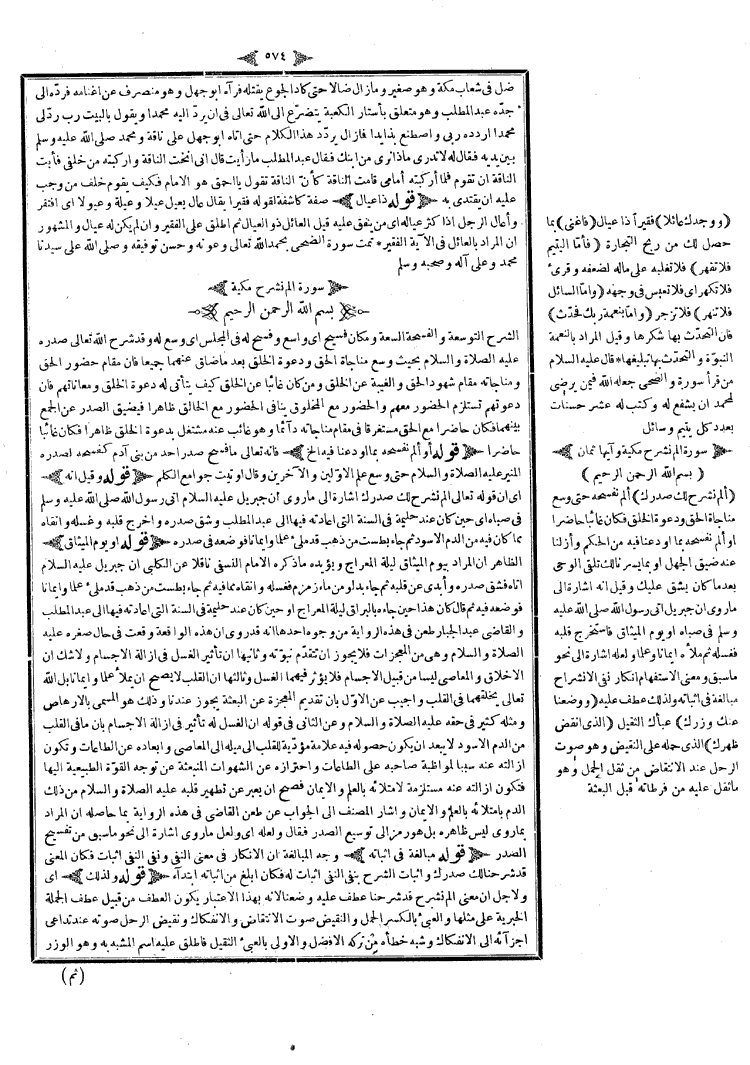 ٥٧٤
ضل فى شعاب مكة وهو صغير وما زال ضالا حتى كاد الجوع يقتله فرآه ابو جهل وهو منصرف عن اغنامه فرده الى
جده عبد المطلب وهو متعلق بأستار الكعبة يتضرع الى الله تعالى فى ان يرد اليه محمدا ويقول يا لبيت رب ردلى
محمدا اردده ربى واصطنع بذايدا فما زال يردد هذا الكلام حتى اتاه ابو جهل على ناقة ومحمد صلى الله عليه وسلم
بين يديه فقال له لا تدرى ماذا نرى من ابنك فقال عبد المطلب ما رأيت قال انى انخت الناقة واركبته من خلفى فأبت
الناقة ان تقوم فلما أركبته أمامى قامت الناقة كأن الناقة تقول يا احمق هو الامام فكيف يقوم خلف من وجب
عليه ان يقتدى به ﴿ قوله ذا عيال ﴾ صفة كاشفة لقوله فقيرا يقال عال يعيل عيلا وعيلة وعيولا اى افتقر
وأعال الرجل اذا كثر عياله اى من ينفق عليه قيل العائل ذو العيال ثم اطلق على الفقير وان لم يكن له عيال والمشهور
ان المراد بالعائل فى الآية الفقير ه تمت سورة الضحى بحمد الله تعالى وعونه وحسن توفيقه وصلى الله على سيدنا
محمد وعلى آله وصحبه وسلم
﴿ سورة الم نشرح مكية ﴾
﴿ بسم الله الرحمن الرحيم ﴾
الشرح التوسعة والفسحة السعة ومكان فسيح اى واسع وفسح له فى المجلس اى وسع له وقد شرح الله تعالى صدره
عليه الصلاة والسلام بحيث وسع مناجاة الحق ودعوة الخلق بعد ما ضاق عنهما جميعا فان مقام حضور الحق
ومناجاته مقام شهود الحق والغيبة عن الخلق ومن كان غائبا عن الخلق كيف يتأتى له دعوة الخلق ومعاناتهم فان
دعوتهم تستلزم الحضور معهم والحضور مع المخلوق ينافى الحضور مع الخالق ظاهرا فيضيق الصدر عن الجمع
بينهما فكان حاضرا مع الحق مستغرقا فى مقام مناجاته دآئما وهو غائب عنه مشتغل بدعوة الخلق ظاهرا فكان غائبا
حاضرا ﴿ قوله أو ألم نفسحه بما اودعنا فيه الخ ﴾ فانه تعالى ما فسح صدر احد من بنى آدم كفسحه لصدره
المنير عليه الصلاة والسلام حتى وسع علم الاولين والآخرين وقال اوتيت جوامع الكلم ﴿ قوله وقيل انه ﴾
اى ان قوله تعالى الم نشرح لك صدرك اشارة الى ما روى أن جبريل عليه السلام اتى رسول الله صلى الله عليه وسلم
فى صباه اى حين كان عند حليمة فى السنة التى اعادته فيها الى عبد المطلب وشق صدره واخرج قلبه وغسله وانقاه
مما كان فيه من الدم الاسود ثم جاء بطست من ذهب قد ملئ علما وايمانا فوضعه فى صدره ﴿ قوله او يوم الميثاق ﴾
الظاهر ان المراد بيوم الميثاق ليلة المعراج ويؤيده ما ذكره الامام النسفى ناقلا عن الكلبى ان جبريل عليه السلام
اتاه فشق صدره وأبدى عن قلبه ثم جاء بدلو من ماء زمزم فغسله وانقاه مما فيه ثم جاء بطست من ذهب قد ملئ علما وايمانا
فوضعه فيه ثم قال كان هذا حين جاءه بالبراق ليلة المعراج او حين كان عند حليمة فى السنة التى اعادته فيها الى عبد المطلب
والقاضى عبد الجبار طعن فى هذه الرواية من وجوه احدها انه قد روى ان هذه الواقعة وقعت فى حال صغره عليه
الصلاة والسلام وهى من المعجزات فلا يجوز ان تتقدم نبوته وثانيها ان تأثير الغسل فى ازالة الاجسام ولا شك ان
الاخلاق والمعاصى ليسا من قبيل الاجسام فلا يؤثر فيهما الغسل وثالثها ان القلب لا يصح ان يملأ علما وايمانا بل الله
تعالى يخلقهما فى القلب واجيب عن الاول بان تقديم المعجزة عن البعثة يجوز عندنا وذلك هو المسمى بالارهاص
ومثله كثير فى حقه عليه الصلاة والسلام وعن الثانى فى قوله ان الغسل له تأثير فى ازالة الاجسام بان ما فى القلب
من الدم الاسود لا يبعد ان يكون حصوله فيه علامة مؤدية للقلب الى ميله الى المعاصى وابعاده عن الطاعات وتكون
ازالته عنه سببا لمواظبة صاحبه على الطاعات واحترازه عن الشهوات المنبعثة عن توجه القوة الطبيعية اليها
فتكون ازالته عنه مستلزمة لامتلائه بالعلم والايمان فصح ان يعبر عن تطهير قلبه عليه الصلاة والسلام من ذلك
الدم بامتلائه بالعلم والايمان واشار المصنف الى الجواب عن طعن القاضى فى هذه الرواية بما حاصله ان المراد
بما روى ليس ظاهره بل هو رمز الى توسيع الصدر فقال ولعله اى ولعل ما روى اشارة الى نحو ما سبق من تفسيح
الصدر ﴿ قوله مبالغة فى اثباته ﴾ وجه المبالغة ان الانكار فى معنى النفى ونفى النفى اثبات فكان المعنى
قد شرحنا لك صدرك واثبات الشرح بنفى النفى اثبات له فكان ابلغ من اثباته ابتدآء ﴿ قوله ولذلك ﴾ اى
ولاجل ان معنى الم نشرح قد شرحنا عطف عليه وضعنا لانه بهذا الاعتبار يكون العطف من قبيل عطف الجملة
الخبرية على مثلها والعبئ بالكسر الحمل والنقيض صوت الانتقاض والانفكاك ونقيض الرحل صوته عند تداعى
اجزآئه الى الانفكاك وشبه خطأه من تركه الافضل والاولى بالعبئ الثقيل فاطلق عليه اسم المشبه به وهو الوزر
(ثم)
(ووجدك عائلا) فقيرا ذا عيال (فاغنى) بما
حصل لك من ربح التجارة (فأما اليتيم
فلا تقهر) فلا تغلبه على ماله لضعفه وقرئ
فلا تكهر اى فلا تعبس فى وجهه (واما السائل
فلا تنهر) فلا تزجر (واما بنعمة ربك فحدث)
فان التحدث بها شكرها وقيل المراد بالنعمة
النبوة والتحدث بها تبليغها * قال عليه السلام
من قرأ سورة والضحى جعله الله فيمن يرضى
لمحمد ان يشفع له وكتب له عشر حسنات
بعدد كل يتيم وسائل
﴿ سورة الم نشرح مكية وآيها ثمان ﴾
(بسم الله الرحمن الرحيم)
(ألم نشرح لك صدرك) ألم نفسحه حتى وسع
مناجاة الحق ودعوة الخلق فكان غائبا حاضرا
او ألم نفسحه بما اودعنا فيه من الحكم وأزلنا
عنه ضيق الجهل او بما يسرنا لك تلقى الوحى
بعد ما كان يشق عليك وقيل انه اشارة الى
ما روى ان جبريل اتى رسول الله صلى الله عليه
وسلم فى صباه او يوم الميثاق فاستخرج قلبه
فغسله ثم ملأه ايمانا وعلما ولعله اشارة الى نحو
ما سبق ومعنى الاستفهام انكار نفى الانشراح
مبالغة فى اثباته ولذلك عطف عليه (ووضعنا
عنك وزرك) عبأك الثقيل (الذى انقض
ظهرك) الذى حمله على النقيض وهو صوت
الرحل عند الانتقاض من ثقل الحمل وهو
ما ثقل عليه من فرطاته قبل البعثة